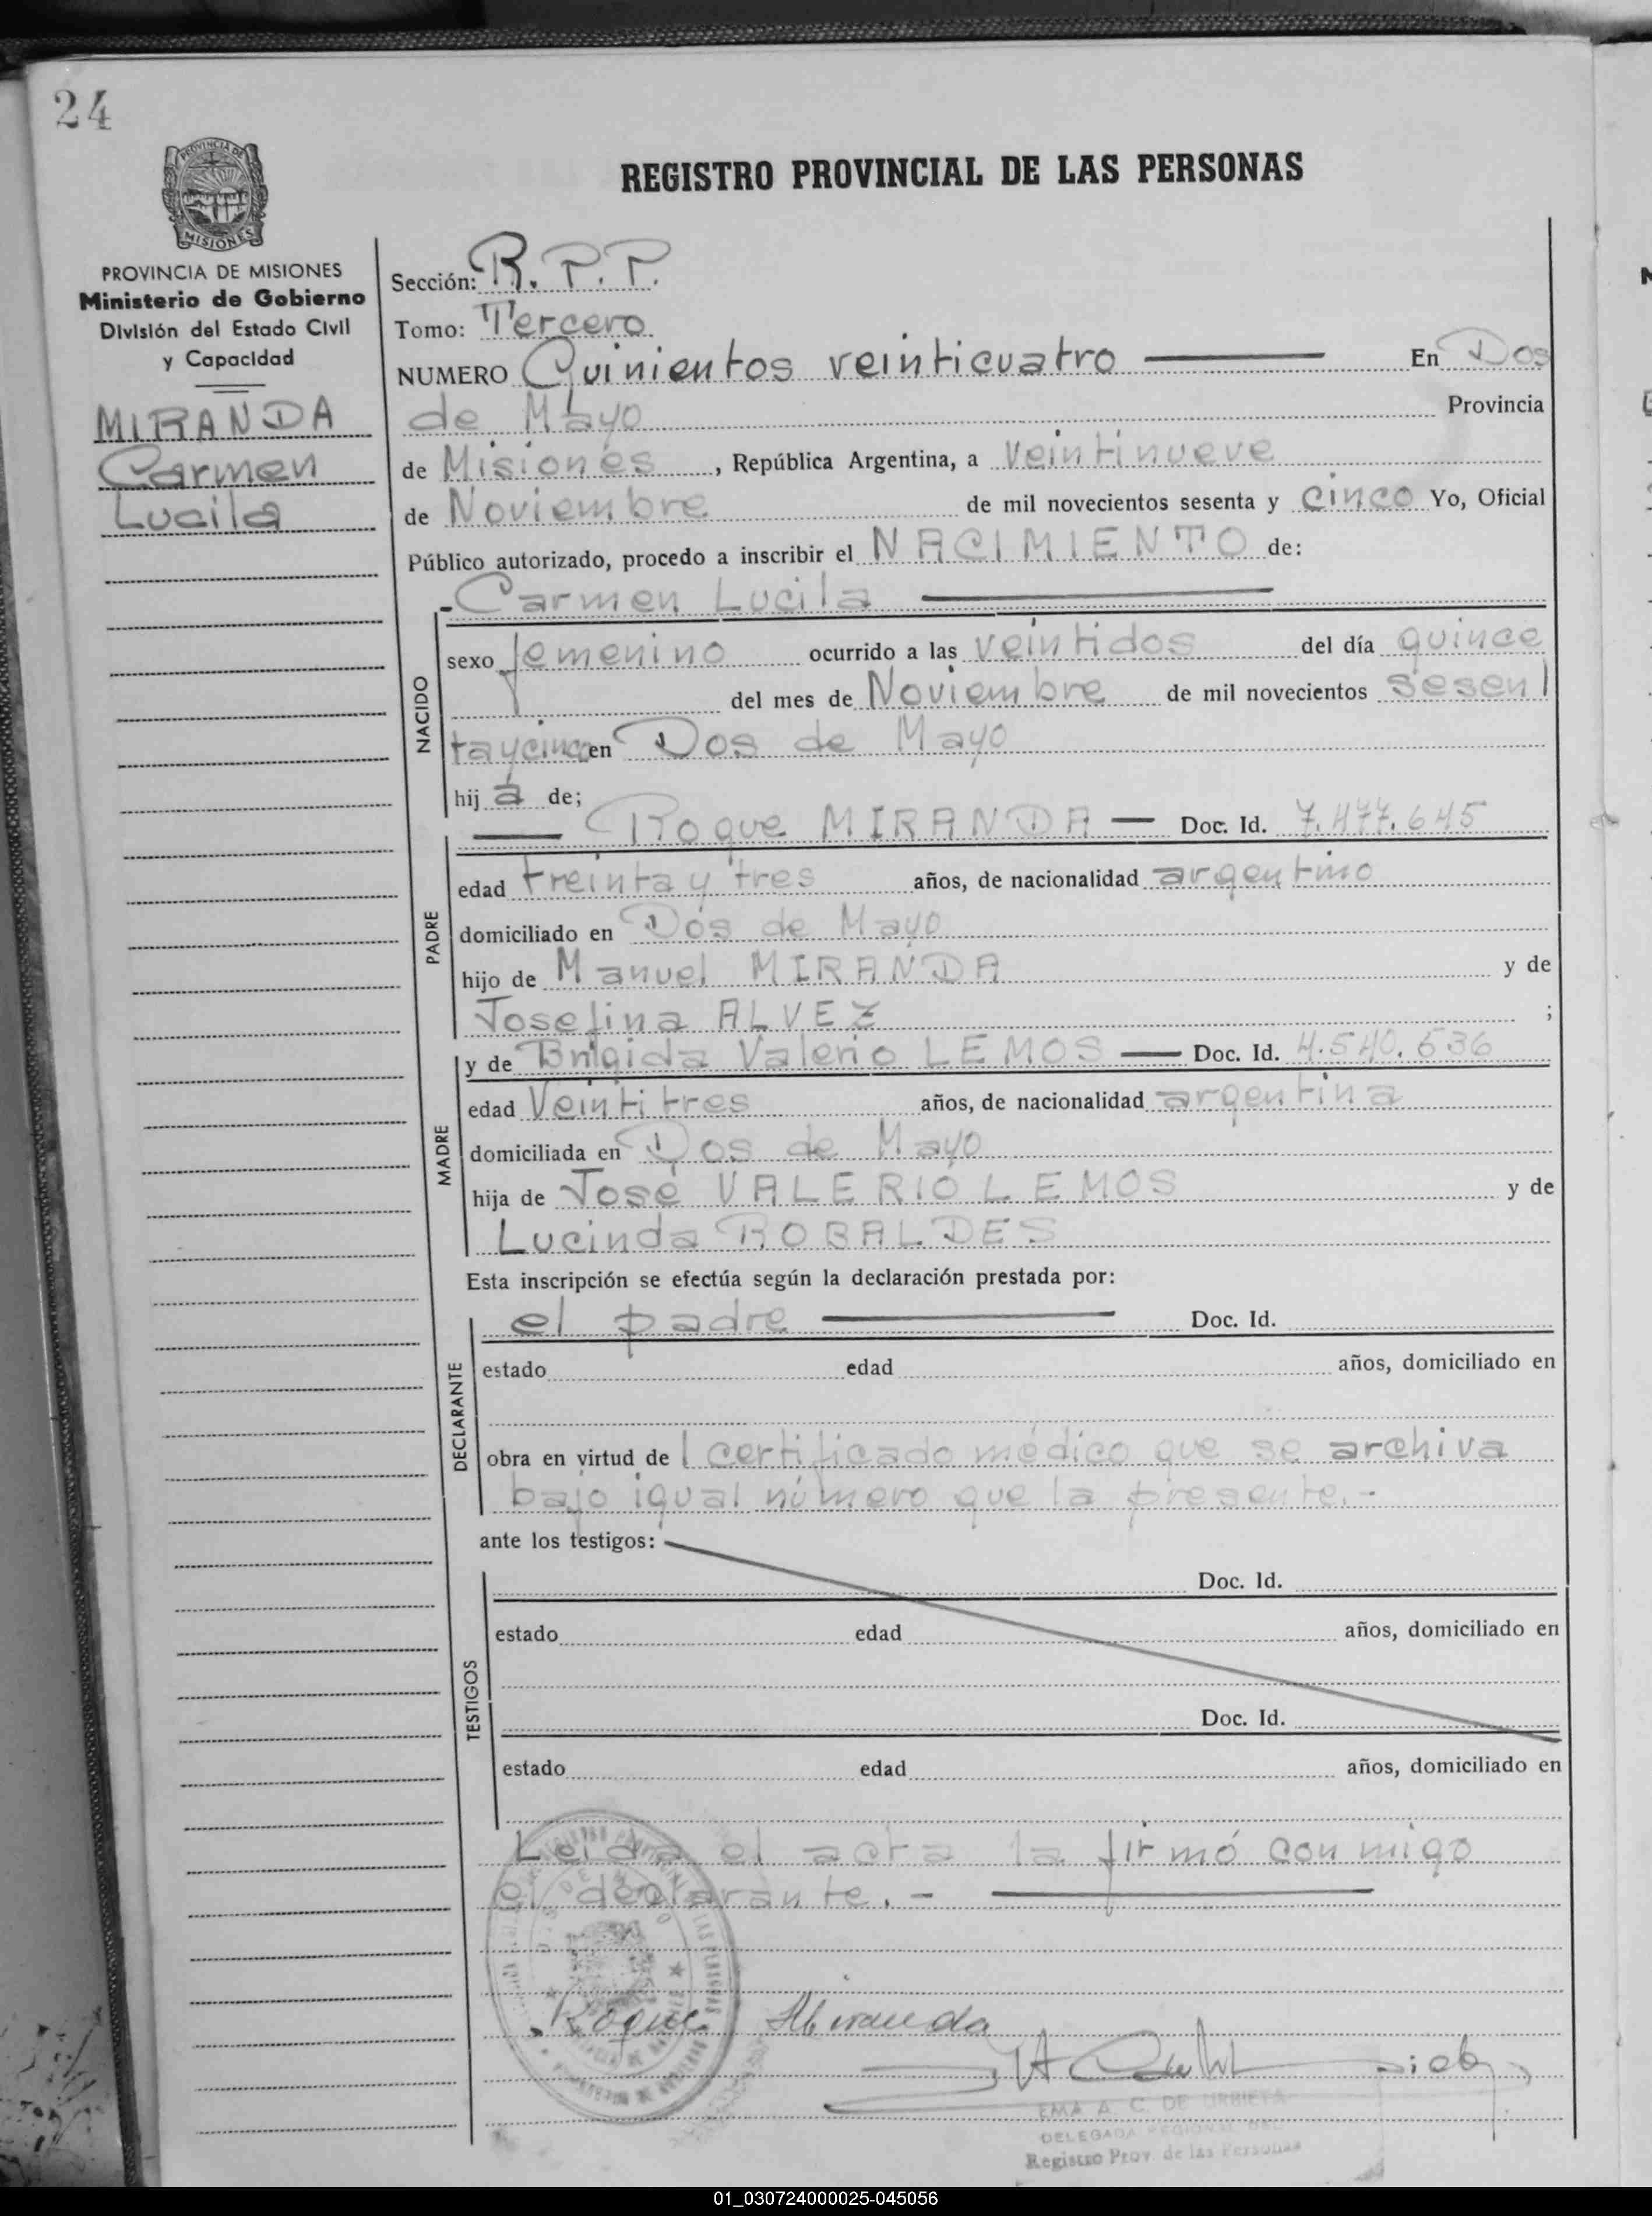 24
PROVINCIA DE
MISIONES
REGISTRO PROVINCIAL DE LAS PERSONAS
PROVINCIA DE MISIONES
Ministerio de Gobierno
División del Estado Civil
y Capacidad
MIRANDA
Carmen
Lucila
Sección: R.P.P.
Tomo: Tercero
NUMERO Quinientos veinticuatro En Dos
de Mayo Provincia
de Misiones, República Argentina, a veintinueve
de Noviembre de mil novecientos sesenta y cinco Yo, Oficial
Público autorizado, procedo a inscribir el NACIMIENTO de:
-Carmen Lucila
NACIDO
sexo femenino ocurrido a las veintidos del día quince
del mes de Noviembre de mil novecientos sesen
taycinco en Dos de Mayo
hij a de;
Roque MIRANDA Doc. Id. 7.477.645
PADRE
edad treinta y tres años, de nacionalidad argentino
domiciliado en Dos de Mayo
hijo de Manuel MIRANDA y de
Josefina ALVEZ ;
y de Brigida Valerio LEMOS Doc. Id. 4.540.636
MADRE
edad Veintitres años, de nacionalidad argentina
domiciliada en Dos de Mayo
hija de José VALERIO LEMOS y de
Lucinda ROBALDES
Esta inscripción se efectúa según la declaración prestada por:
el padre Doc. Id.
DECLARANTE
estado edad años, domiciliado en
obra en virtud de l certificado médico que se archiva
bajo igual número que la presente.-
ante los testigos:
Doc. Id.
TESTIGOS
estado edad años, domiciliado en
Doc. Id.
estado edad años, domiciliado en
Leida el acta la firmó conmigo
el declarante.-
Roque Miranda
EMA A. C. DE URBIETA
DELEGADA REGIONAL DEL
Registro Prov. de las Personas
01_030724000025-045056